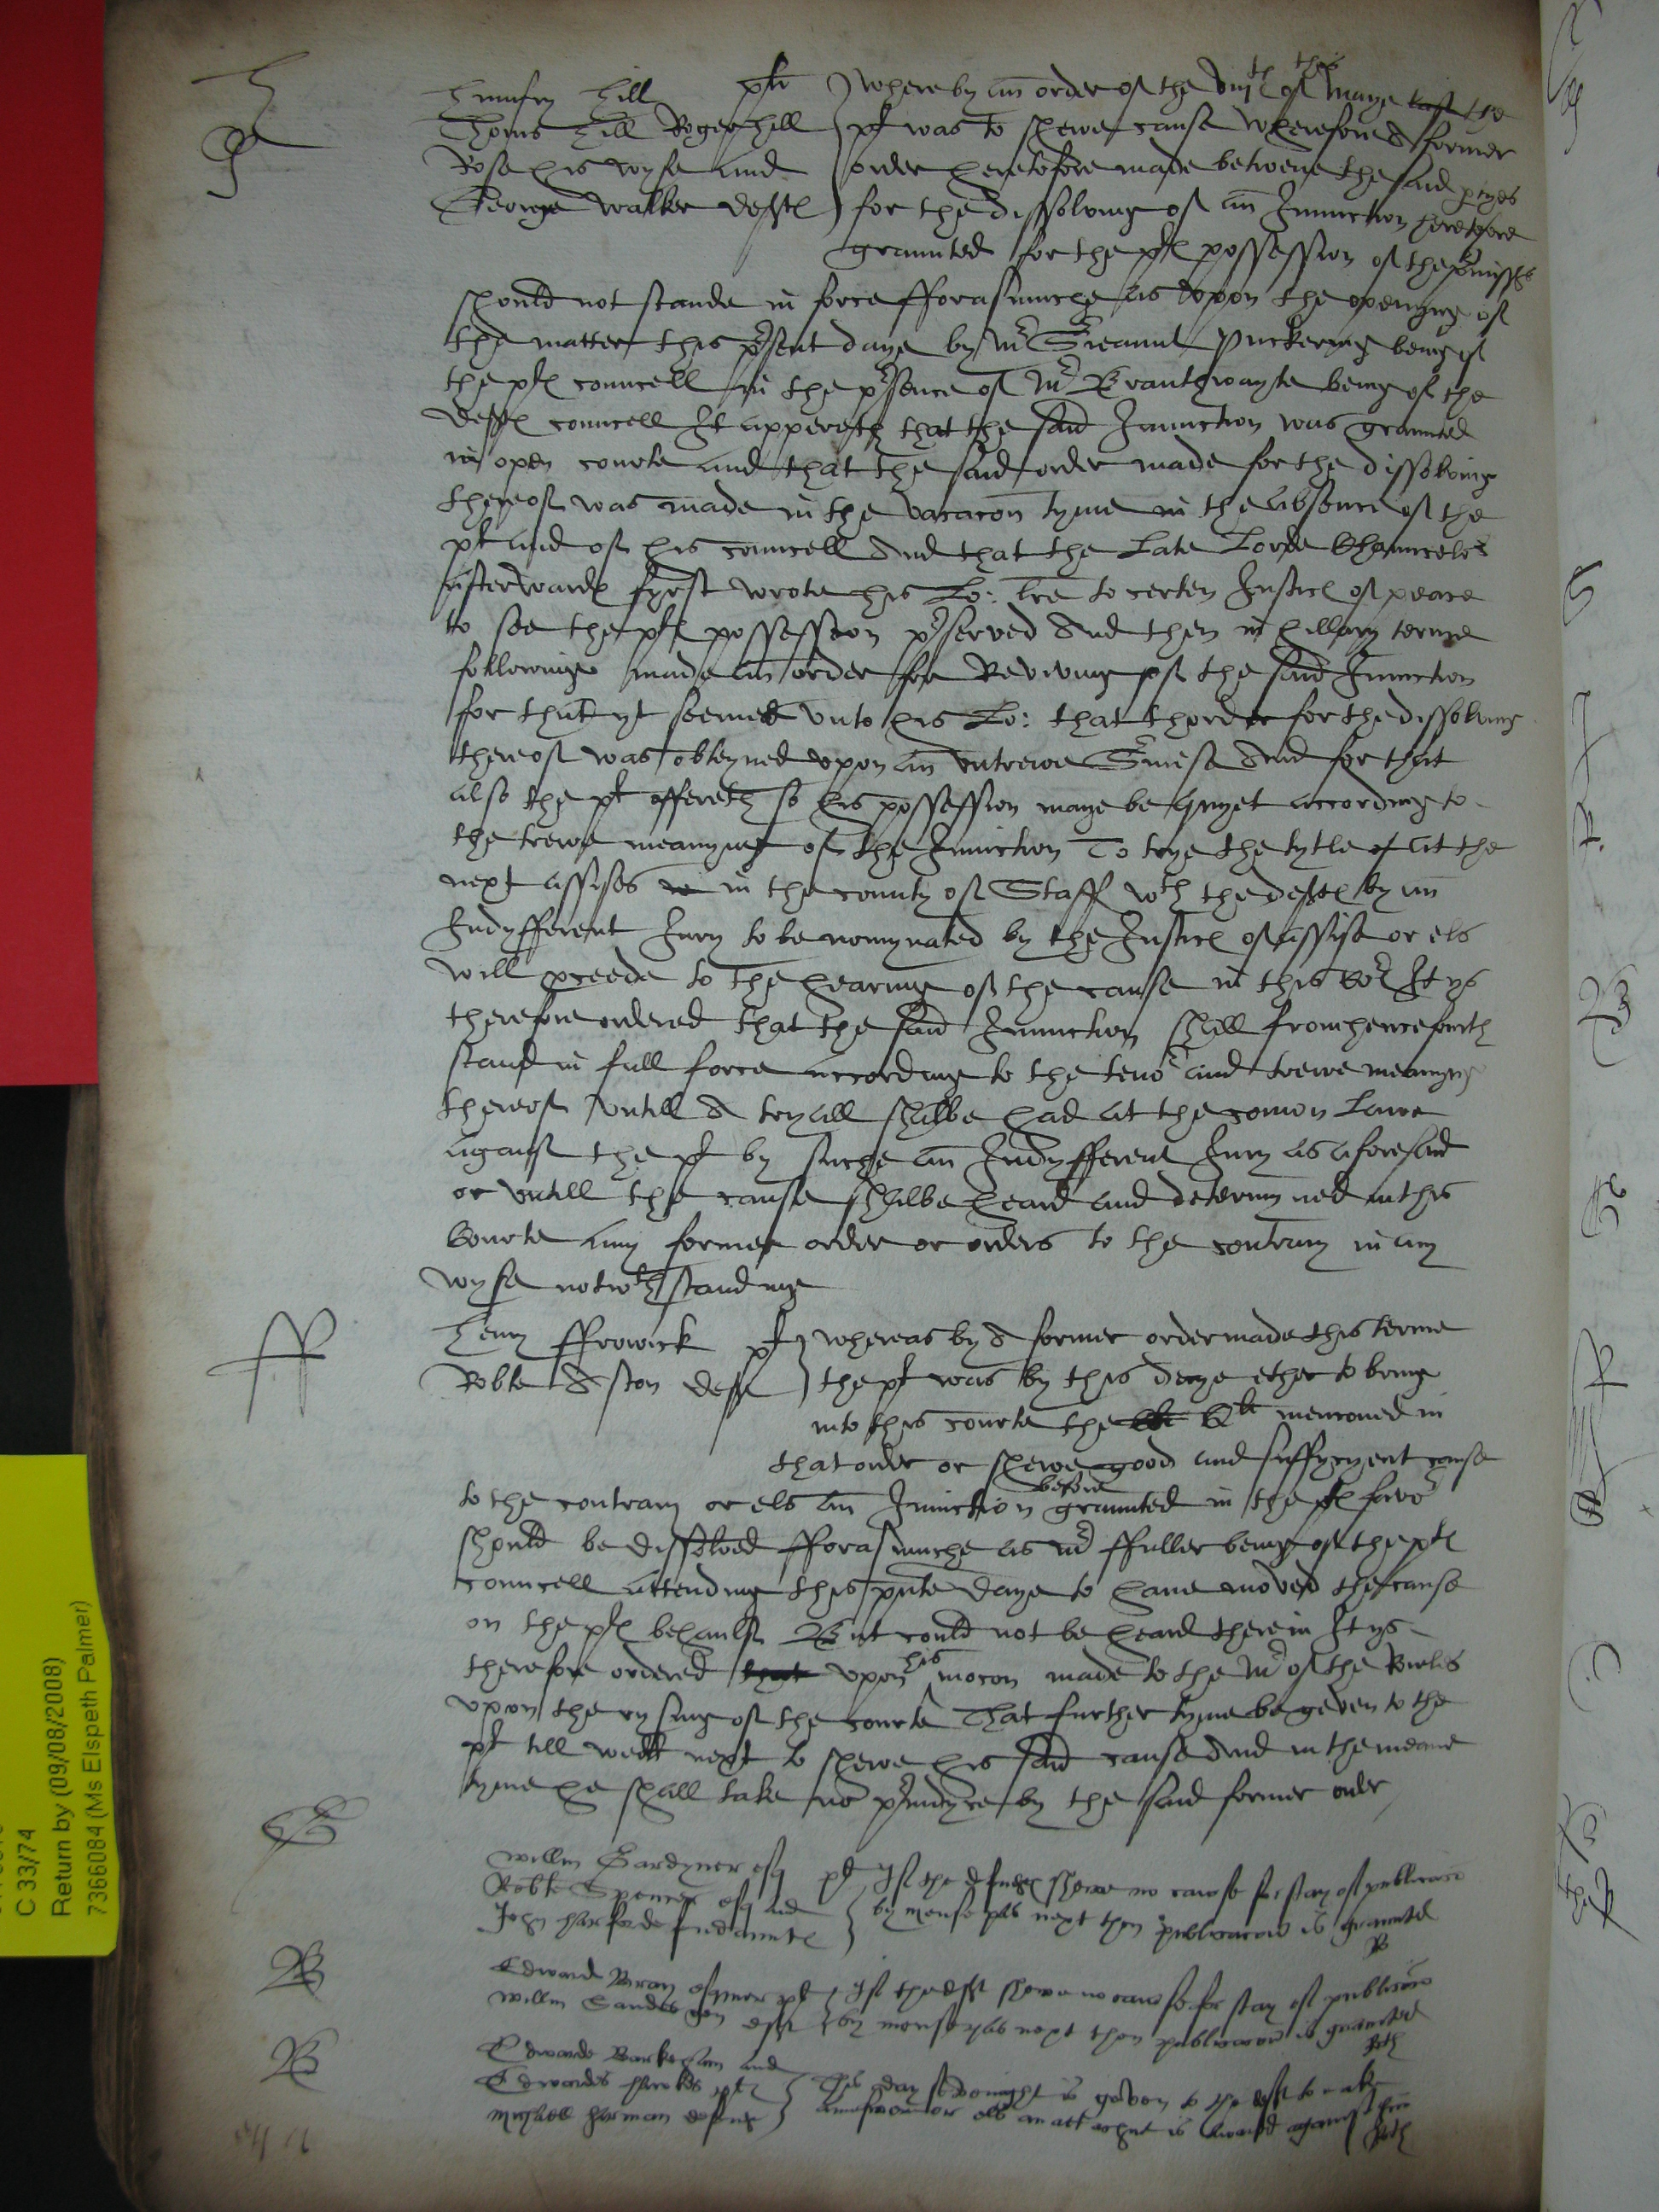 H
P
Humfry Hill plt whereby an order of the viijth of this Maye last the
Thoms Hill Roger hill plt was to shewe cause wherefore A former
Rose his wyfe and order heretofore made betwene the said ptyes
George Walker defts for the dissolving of an Iniunction heretofore
graunted for the plts possession of the pmisses
should not stande in force fforasmuche as vpon the openyng of
the matter this psent daye by Mr Sreaunt Puckering being of
the plts councell in the psence of Mr Brauthwayte being of the
defts councell It appereth that the said Iniunction was graunted
in open courte and that the said order made for the dissolving
thereof was made in the vacacon tyme in the absence of the
plt and of his councell And that the Late Lorde Chauncelor
afterwards fyrst wrote his Lo: lre to certen Iustics of peace
to see the plts possession pserved And then in hillary terme
followinge made an order for Reviving of the said Iniunction
for that yt seemed vnto his Lo: that thorder for the dissolving
thereof was obteyned vpon an vntrewe Surmise And for that
also the plt offereth so his possession maye be quyet according to
the trewe meanyng of the Iniunction To trye the tytle of at the
next assises in in the county of Staff wth the defts by an
Indyfferent Iury to be nomynated by the Iustics of assise or els
will pceede to the hearing of the cause in this Cor It ys
therefore ordered that the said Iniunction shall from henceforth
stand in full force according to the tenor and trewe meanyng
thereof vntill A tryall shalbe had at the comon Lawe
against the plt by suche an Indyfferent Iury as aforesaid
or vntill the cause shalbe heard and determyned in this
Courte any former order or orders to the contrary in any
wyse notwthstanding
ff
Henry ffrowick plt whereas by A former order made this terme
Robte Aston deft the plt was by this daye ether to bring
into this courte the mencioned in
that order or shewe good and suffycyent cause
to the contrary or els an Iniunction before graunted in the plts favor
should be dissolved fforasmuche as Mr ffuller being of the plts
councell attending this pnte daye to have moved the cause
on the plts behaulf But could not be heard therein It ys
therefore ordered that vpon his mocon made to the Mr of the Rowles
vpon the rysing of the courte That further tyme be geven to the
plt till next to shewe his said cause And in the meane
tyme he shall take no piudyce by the said former order
G
Willm Gardyner esq plt Yf the defendts shewe no cawse for stay of publicacon
Robte Spencer esq and by mense pas next then publicacon is graunted
John defendauntes
B
Edward Bray plt Yf the deft shewe no cawse for stay of publicacon
Willm Sandes gen deft by mense pas next then publicacon is graunted
B
Edwarde and
Edwarde plts This day sevenight is geven to the deft to make
Michaell Harman defent answere or els an attachmt is award against him
C 33/74
Return by (09/08/2008)
7366084 (Ms Elspeth Palmer)